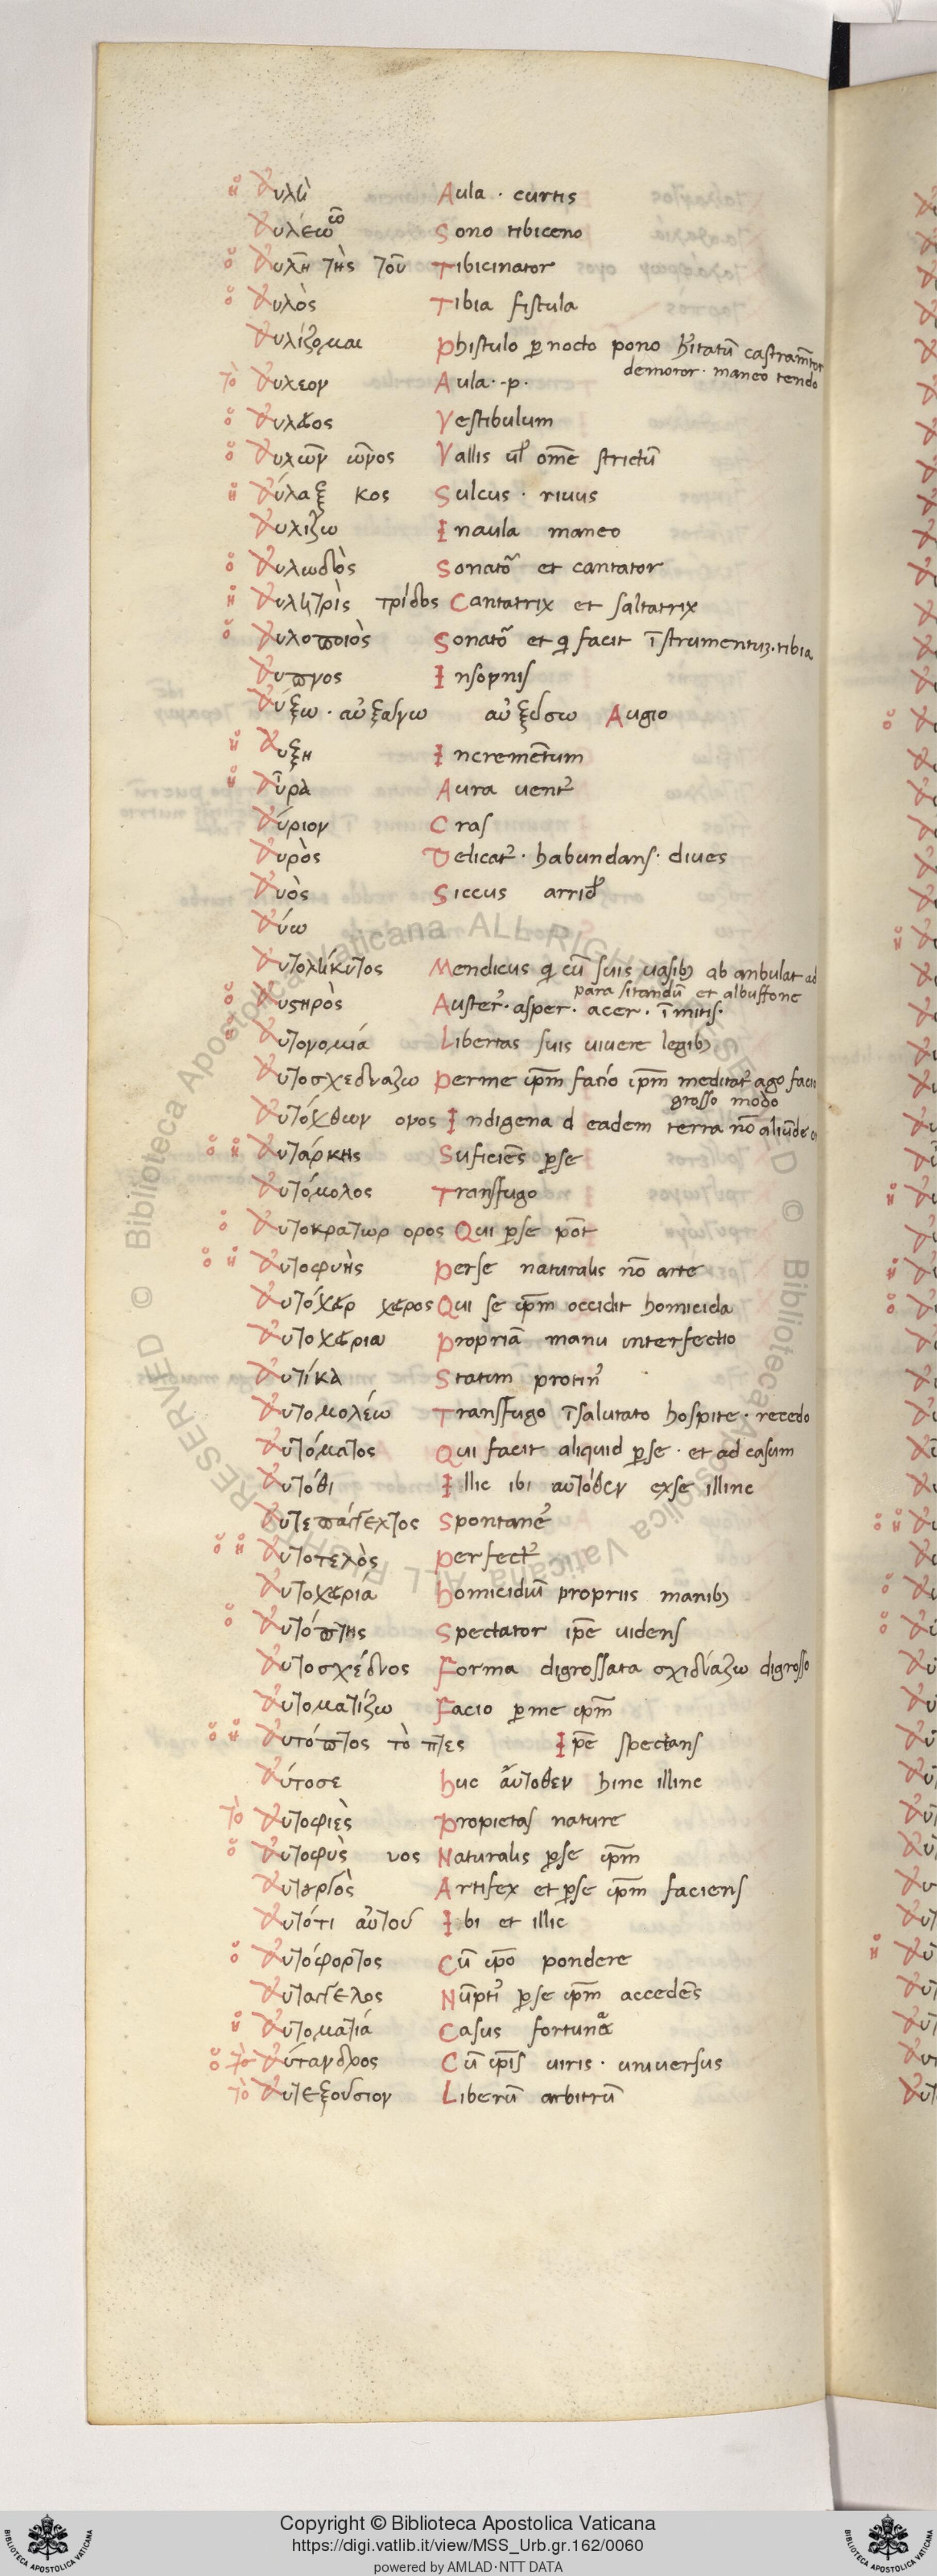 ἡ Αυλὴ Aula · curtis
Αυλέω ῶ Sono tibiceno
ὁ Αυλητὴς τοῦ Tibicinator
ὁ Αυλὸς Tibia fistula
Αυλίζομαι phistulo ꝑnocto pono
demoror · maneo tendo
τὸ Αυλεον Aula · p ·
ὁ Αυλειος Vestibulum
ὁ Αυλῶν ῶνος Vallis ul̛ om̄e strictū
ἡ Αύλαξ κος Sulcus · riuus
Αυλιζω In aula maneo
ὁ Αυλωδὸς Sonato᷑ et cantator
ἡ Αυλητρὶς τρίδος Cantatrix et saltatrix
ὁ Αυλοποιὸς Sonato᷑ et q facit īstrumentuꝫ · tibia
Αυπνος Insopnis
Αύξω · αὐξαίνω αὐξήσω Augio
ἡ Αυξη Incremētum
ἡ Αὔρα Aura uent᷒
Αύριον Cras
Αυρὸς Delicat᷒ · habundans · diues
Αυὸς Siccus arrid᷒
Αύω
Αυτολήκυτος Mendicus q cū suis uasibꝫ ab anbulat ad
para sitandū et albuffone
ὁ Αυστηρὸς Auster᷒ · asper · acer · īmitis ·
ἡ Αυτονομιά Libertas suis uiuere legibꝫ
Αυτοσχεδιαζω perme ip̄m facio ip̄m meditat᷒ ago facio
grosso modo
Αυτόχθων ονος Indigena d eadem terra nō aliūde
ὁ ἡ Αυτάρκης Suficiēs ꝑse
Αυτόμολος Transfugo
ὁ Αυτοκρατωρ ορος Qui ꝑse pōt
ὁ ἡ Αυτοφυὴς perse naturalis nō arte
Αυτόχειρ χειρος Qui se ip̄m occidit homicida
Αυτοχειρια propriā manu interfectio
Αυτίκα Statim protin᷒
Αυτομολέω Transfugo īsalutato hospite · recedo
Αυτόματος Qui facit aliquid ꝑse · et ad casum
Αυτόθι Illic ibi αυτόθεν exse illinc
Αυτεπάγγελτος Spontane᷒
ὁ ἡ Αυτοτελὸς perfect᷒
Αυτοχειριά homicidiū propriis manibꝫ
ὁ Αυτόπτης Spectator ip̄e uidens
Αυτοσχέδιος Forma digrossata σχιδιάζω digrosso
Αυτοματίζω Facio ꝑme ip̄m
ὁ ἡ Αυτόπτος τὸ πτες Ip̄e spectans
Αύτοσε huc ἀύτοθεν hinc illinc
τὸ Αυτοφιὲς propietas nature
ὁ Αυτοφὺς υος Naturalis ꝑse ip̄m
Αυτουργὸς Artifex et ꝑse ip̄m faciens
Αυτότι αὐτοῦ Ibi et illic
ὁ Αυτόφορτος Cū ip̄o pondere
Αυταγγελος Nūpti᷒ ꝑse ip̄m accedēs
ἡ Αυτοματιά Casus fortuna
ὁ τὸ Αύτανδρος Cū ip̄is uiris · uniuersus
τὸ Αυτεξούσιον Liberū arbitriū
Copyright © Biblioteca Apostolica Vaticana
https://digi.vatlib.it/view/MSS_Urb.gr.162/0060
powered by AMLAD·NTT DATA